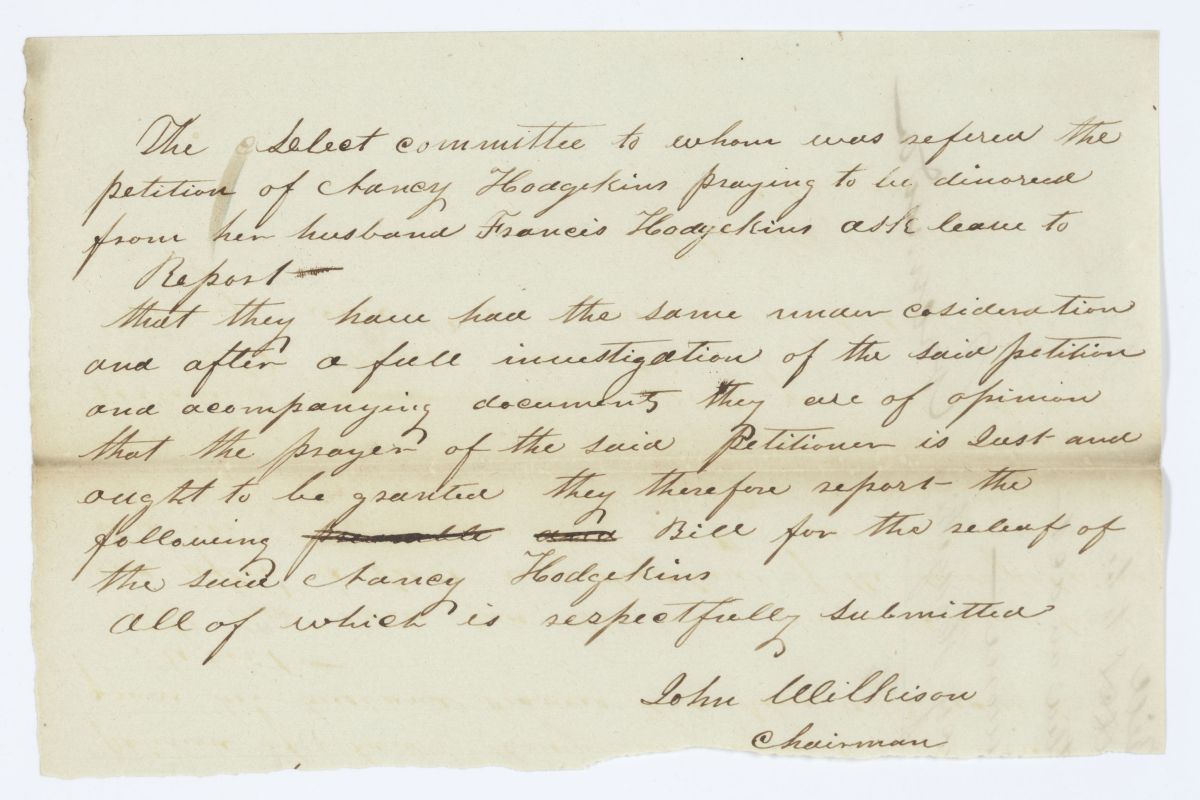 The Select committee to whom was refered the
petition of Nancy Hodgekins praying to be divorced
from her husband Francis Hodgekins ask leave to
Report
that they have had the same under cosideration
and after a full investigation of the said petition
and acompanying documents they are of opinion
that the prayer of the said Petitioner is Just and
ought to be granted they therefore report the
following preamble and Bill for the releaf of
the said Nancy Hodgekins
All of which is respectfully submitted
John Wilkison
Chairman